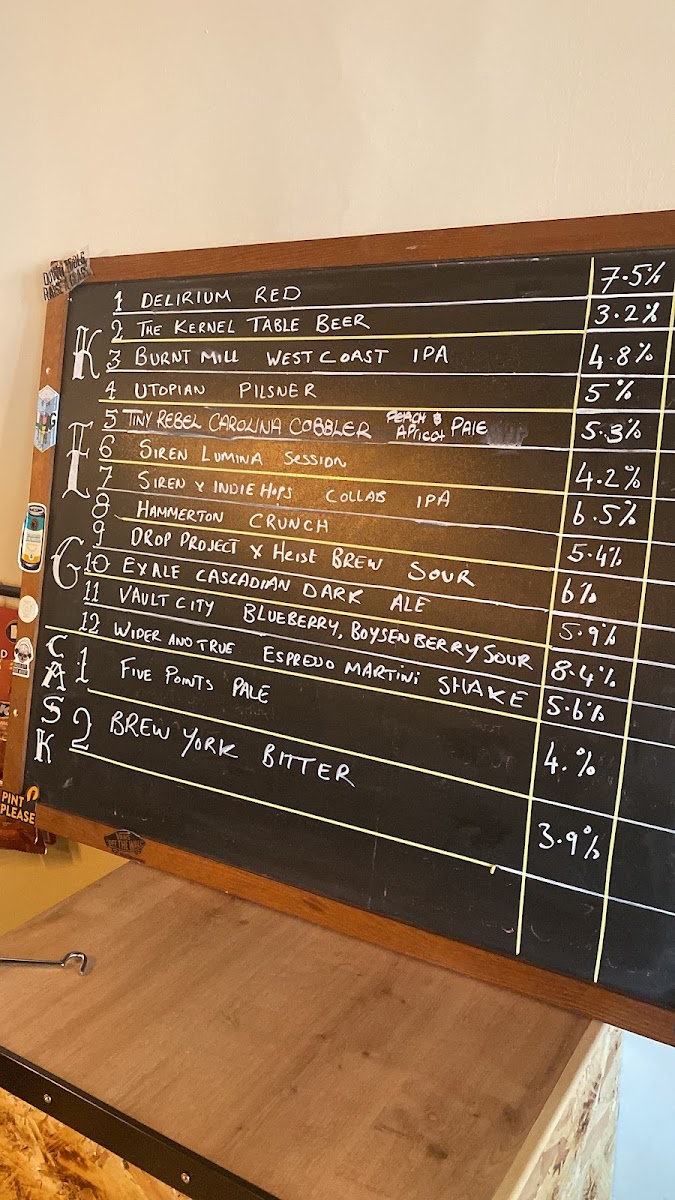 1 DELIRIUM RED 7.5%
2 THE KERNEL TABLE BEER 3.2%
3 BURNT MILL WEST COAST IPA 4.8%
4 UTOPIAN PILSNER 5%
5 TINY REBEL CAROLINA COBBLER PEACH & APRICOT PALE 5.3%
6 SIREN LUMINA SESSION 4.2%
7 SIREN X INDIE HOPS COLLAB IPA 6.5%
8 HAMMERTON CRUNCH 5.4%
9 DROP PROJECT X HEIST BREW SOUR 6%
10 EXALE CASCADIAN DARK ALE 5.9%
11 VAULT CITY BLUEBERRY, BOYSENBERRY SOUR 8.4%
12 WIPER AND TRUE ESPRESSO MARTINI SHAKE 5.6%
KEG
1 FIVE POINTS PALE 4.%
2 BREW YORK BITTER 3.9%
CASK
PINT PLEASE